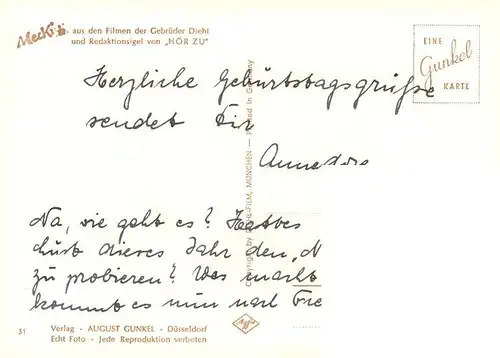 Mecki
aus den Filmen der Gebrüder Diehl
und Redaktionsigel von „HÖR ZU"
EINE
Gunkel
KARTE
Herzliche Geburtstagsgrüße
sendet Dir
Na, wie geht es?
dieses Jahr den „N
zu probieren? Was macht
kommt es nun
Copyright by DIEHL-FILM, MÜNCHEN — Printed in Germany
31
Verlag - AUGUST GUNKEL - Düsseldorf
Echt Foto - Jede Reproduktion verboten